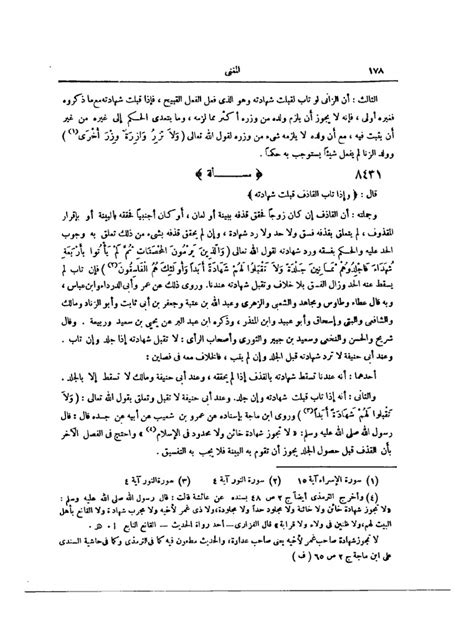 ١٧٨ المغنى
الثالث : أن الزانى لو تاب لقبلت شهادته وهو الذى فعل الفعل القبيح ، فإذا قبلت شهادته مع ما ذكروه
فغيره أولى ، فإنه لا يجوز أن يلزم ولده من وزره أكثر مما لزمه ، وما يتعدى الحكم إلى غيره من غير
أن يثبت فيه ، مع أن ولده لا يلزمه شىء من وزره لقول الله تعالى ( وَلَا تَزِرُ وَازِرَةٌ وِزْرَ أُخْرَى (١) )
وولد الزنا لم يفعل شيئاً يستوجب به حكماً .
٨٤٣١ ﴿ مسألة ﴾
قال : ﴿ وإذا تاب القاذف قبلت شهادته ﴾
وجملته : أن القاذف إن كان زوجاً فحقق قذفه ببينة أو لعان ، أو كان أجنبياً فحققه بالبينة أو بإقرار
المقذوف ، لم يتعلق بقذفه فسق ولا حد ولا رد شهادة ، وإن لم يحقق قذفه بشىء من ذلك تعلق به وجوب
الحد عليه والحكم بفسقه ورد شهادته لقول الله تعالى ( وَالَّذِينَ يَرْمُونَ الْمُحْصَنَاتِ ثُمَّ لَمْ يَأْتُوا بِأَرْبَعَةِ
شُهَدَاءَ فَاجْلِدُوهُمْ ثَمَانِينَ جَلْدَةً وَلَا تَقْبَلُوا لَهُمْ شَهَادَةً أَبَداً وَأُولَئِكَ هُمُ الْفَاسِقُونَ (٢) ) فإن تاب لم
يسقط عنه الحد وزال الفسق بلا خلاف وتقبل شهادته عندنا. وروى ذلك عن عمر وأبى الدرداء وابن عباس ،
وبه قال عطاء وطاوس ومجاهد والشعبى والزهرى وعبد الله بن عتبة وجعفر بن أبى ثابت وأبو الزناد ومالك
والشافعى والبتى وإسحاق وأبو عبيد وابن المنذر ، وذكره ابن عبد البر عن يحيى بن سعيد وربيعة . وقال
شريح والحسن والنخعى وسعيد بن جبير والثورى وأصحاب الرأى : لا تقبل شهادته إذا جلد وإن تاب .
وعند أبى حنيفة لا ترد شهادته قبل الجلد وإن لم يتب ، فالخلاف معه فى فصلين :
أحدهما : أنه عندنا تسقط شهادته بالقذف إذا لم يحققه ، وعند أبى حنيفة ومالك لا تسقط إلا بالجلد .
والثانى : أنه إذا تاب قبلت شهادته وإن جلد. وعند أبى حنيفة لا تقبل وتعلق بقول الله تعالى : ( وَلَا
تَقْبَلُوا لَهُمْ شَهَادَةً أَبَداً (٣) ) وروى ابن ماجة بإسناده عن عمرو بن شعيب عن أبيه عن جده قال : قال
رسول الله صلى الله عليه وسلم: « لا تجوز شهادة خائن ولا محدود فى الإسلام (٤) » واحتج فى الفصل الآخر
بأن القذف قبل حصول الجلد يجوز أن تقوم به البينة فلا يجب به التفسيق .
(١) سورة الإسراء آية ١٥ (٢) سورة النور آية ٤ (٣) سورة النور آية ٤
(٤) وأخرج الترمذى أيضاً ج ٢ ص ٤٨ بسنده عن عائشة قالت : قال رسول الله صلى الله عليه وسلم :
«لا تجوز شهادة خائن ولا خائنة ولا مجلود حداً ولا مجلودة، ولا ذى غمر لأخيه ولا مجرب شهادة ولا القانع بأهل
البيت لهم، ولا ظنين فى ولاء ولا قرابة» قال الفزارى ـ أحد رواة الحديث ـ القانع التابع ا . هـ .
لا تجوز شهادة صاحب غمر لأخيه يعنى صاحب عداوة، والحديث مطعون فيه كما فى الترمذى وكما فى حاشية السندى
على ابن ماجة ج ٢ ص ٦٥ ( ف )